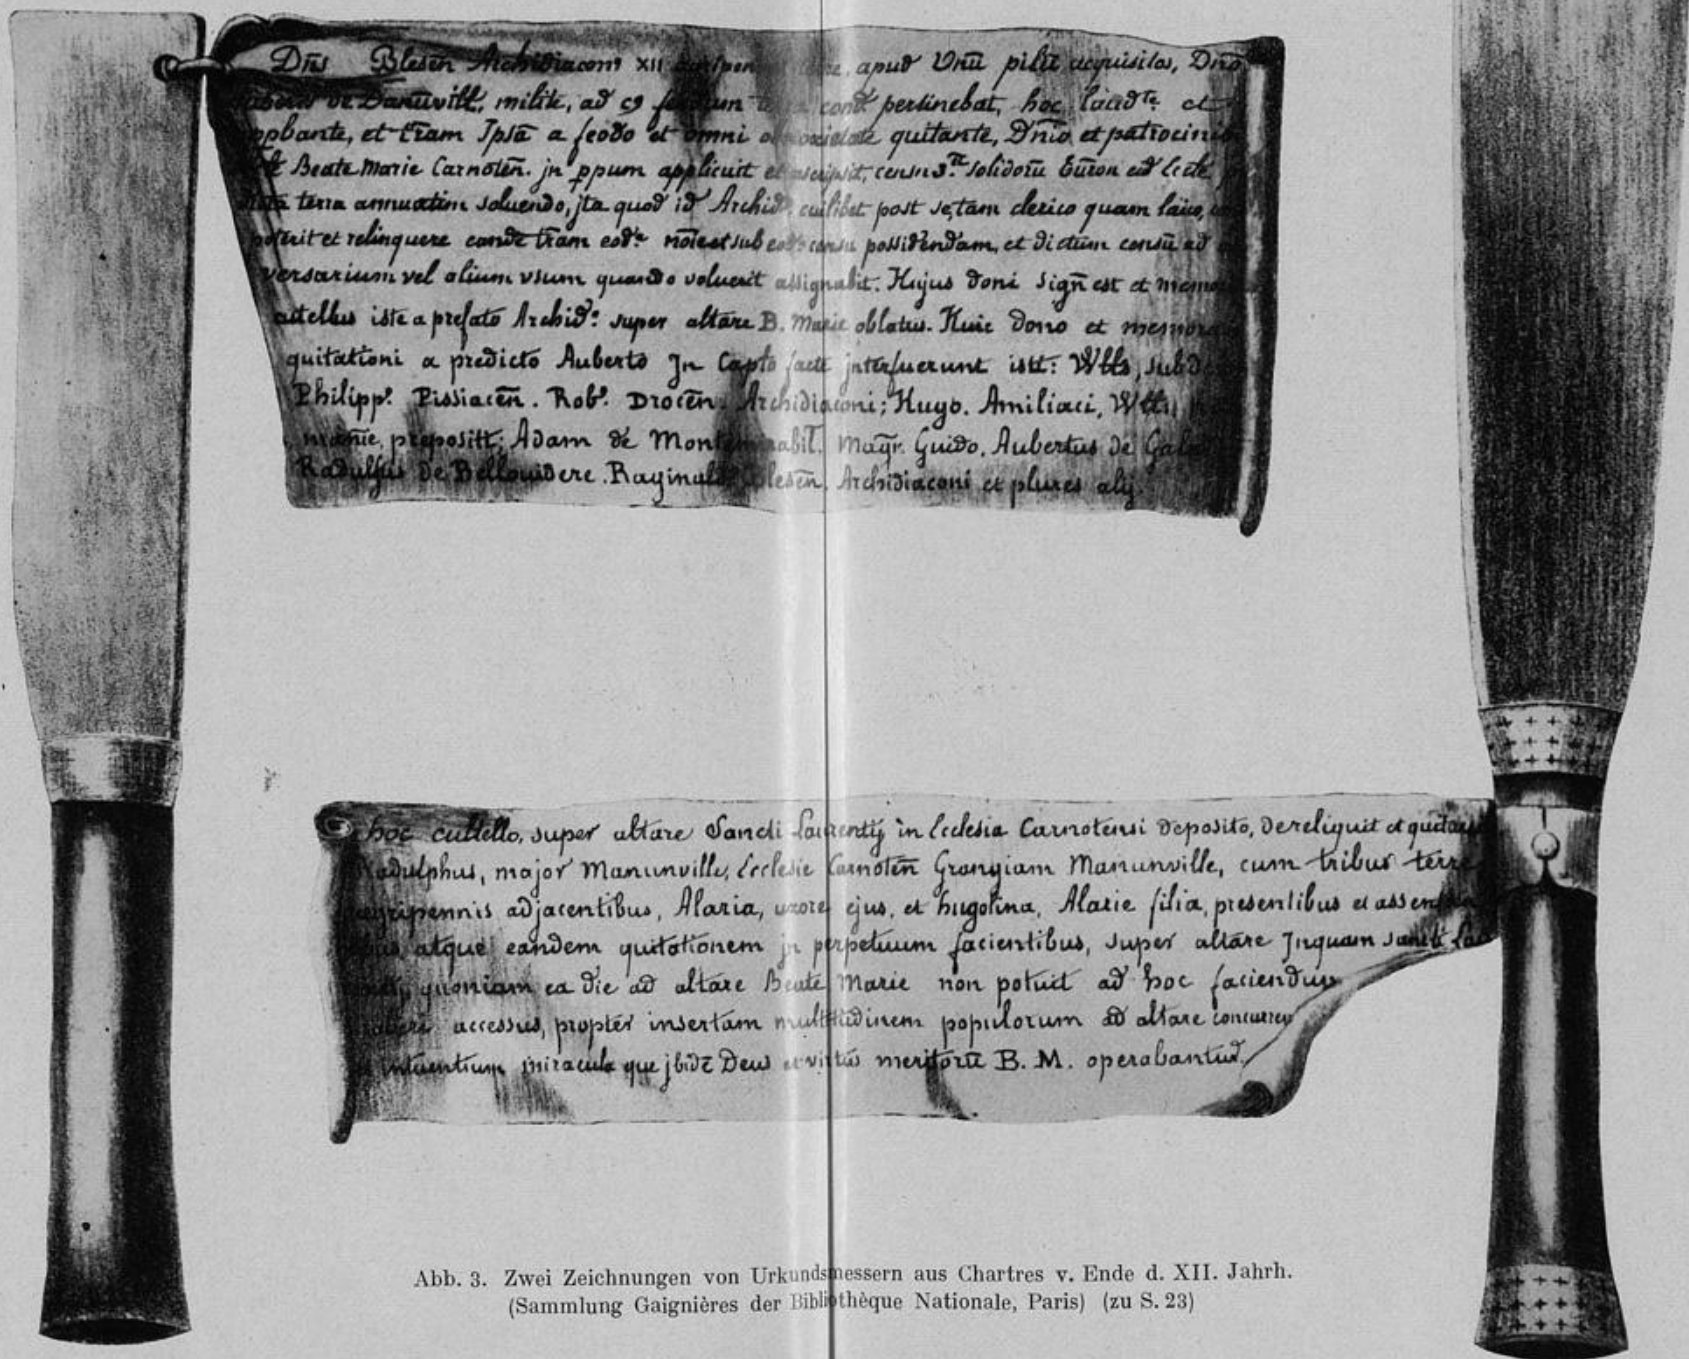 Dn̄s Blesen̄ Archidiacon⁹ XII apud Unū pilū acquisitos, Dnō
de Danuvill, milite, ad c9 pertinebat, hoc laudte et
ppbante, et trām Ipsā a feodo et omni quitante, Dn̄io et patrocinio
Beate Marie Carnoten̄. jn ppuum applicuit et ascripsit, censu 3. solidorū
terra annuatim soluendo, jta quod id Archid. cuilibet post se, tam clerico quam laico,
poterit et relinquere eandē trām eode nōīe et sub eode censu possidendam, et dictum censū ad
versarium vel alium vsum quando voluerit assignabit. Hujus doni Sign̄ est et memo
cutellus iste a prefato Archid°. super altare B. Marie oblatus. Huic dono et memora
quitationi a predicto Auberto Jn Capło facte jnterfuerunt isti: Włłs, subd
Philipp⁹. Pissiacēn. Rob⁹. Drocēn. Archidiaconi; Hugo. Amiliaci, Włłs
prepositi; Adam de Montemirabil. Magr. Guido. Aubertus de Gal
Radulfus de Bellouidere. Raginald Blesēn. Archidiaconi et plures alij.
hoc cultello, super altare Sancti Laurentij in Ecclesia Carnotensi deposito, dereliquit et quitauit
Radulphus, major Manunville, Ecclesie Carnotēn Grangiam Manunville, cum tribus terre
agripennis adjacentibus, Alaria, uxore ejus, et hugolina, Alarie filia, presentibus et assen
bus, atque eandem quitationem jn perpetuum facientibus, super altare Jnquam sancti Lau
rentij, quoniam ea die ad altare Beate Marie non potuit ad hoc faciendum
accessus, propter insertam multitudinem populorum ad altare concurren
intuentium miracula que jbidē Deus et virtus meritorū B. M. operabantur.
Abb. 3. Zwei Zeichnungen von Urkundsmessern aus Chartres v. Ende d. XII. Jahrh.
(Sammlung Gaignières der Bibliothèque Nationale, Paris) (zu S. 23)